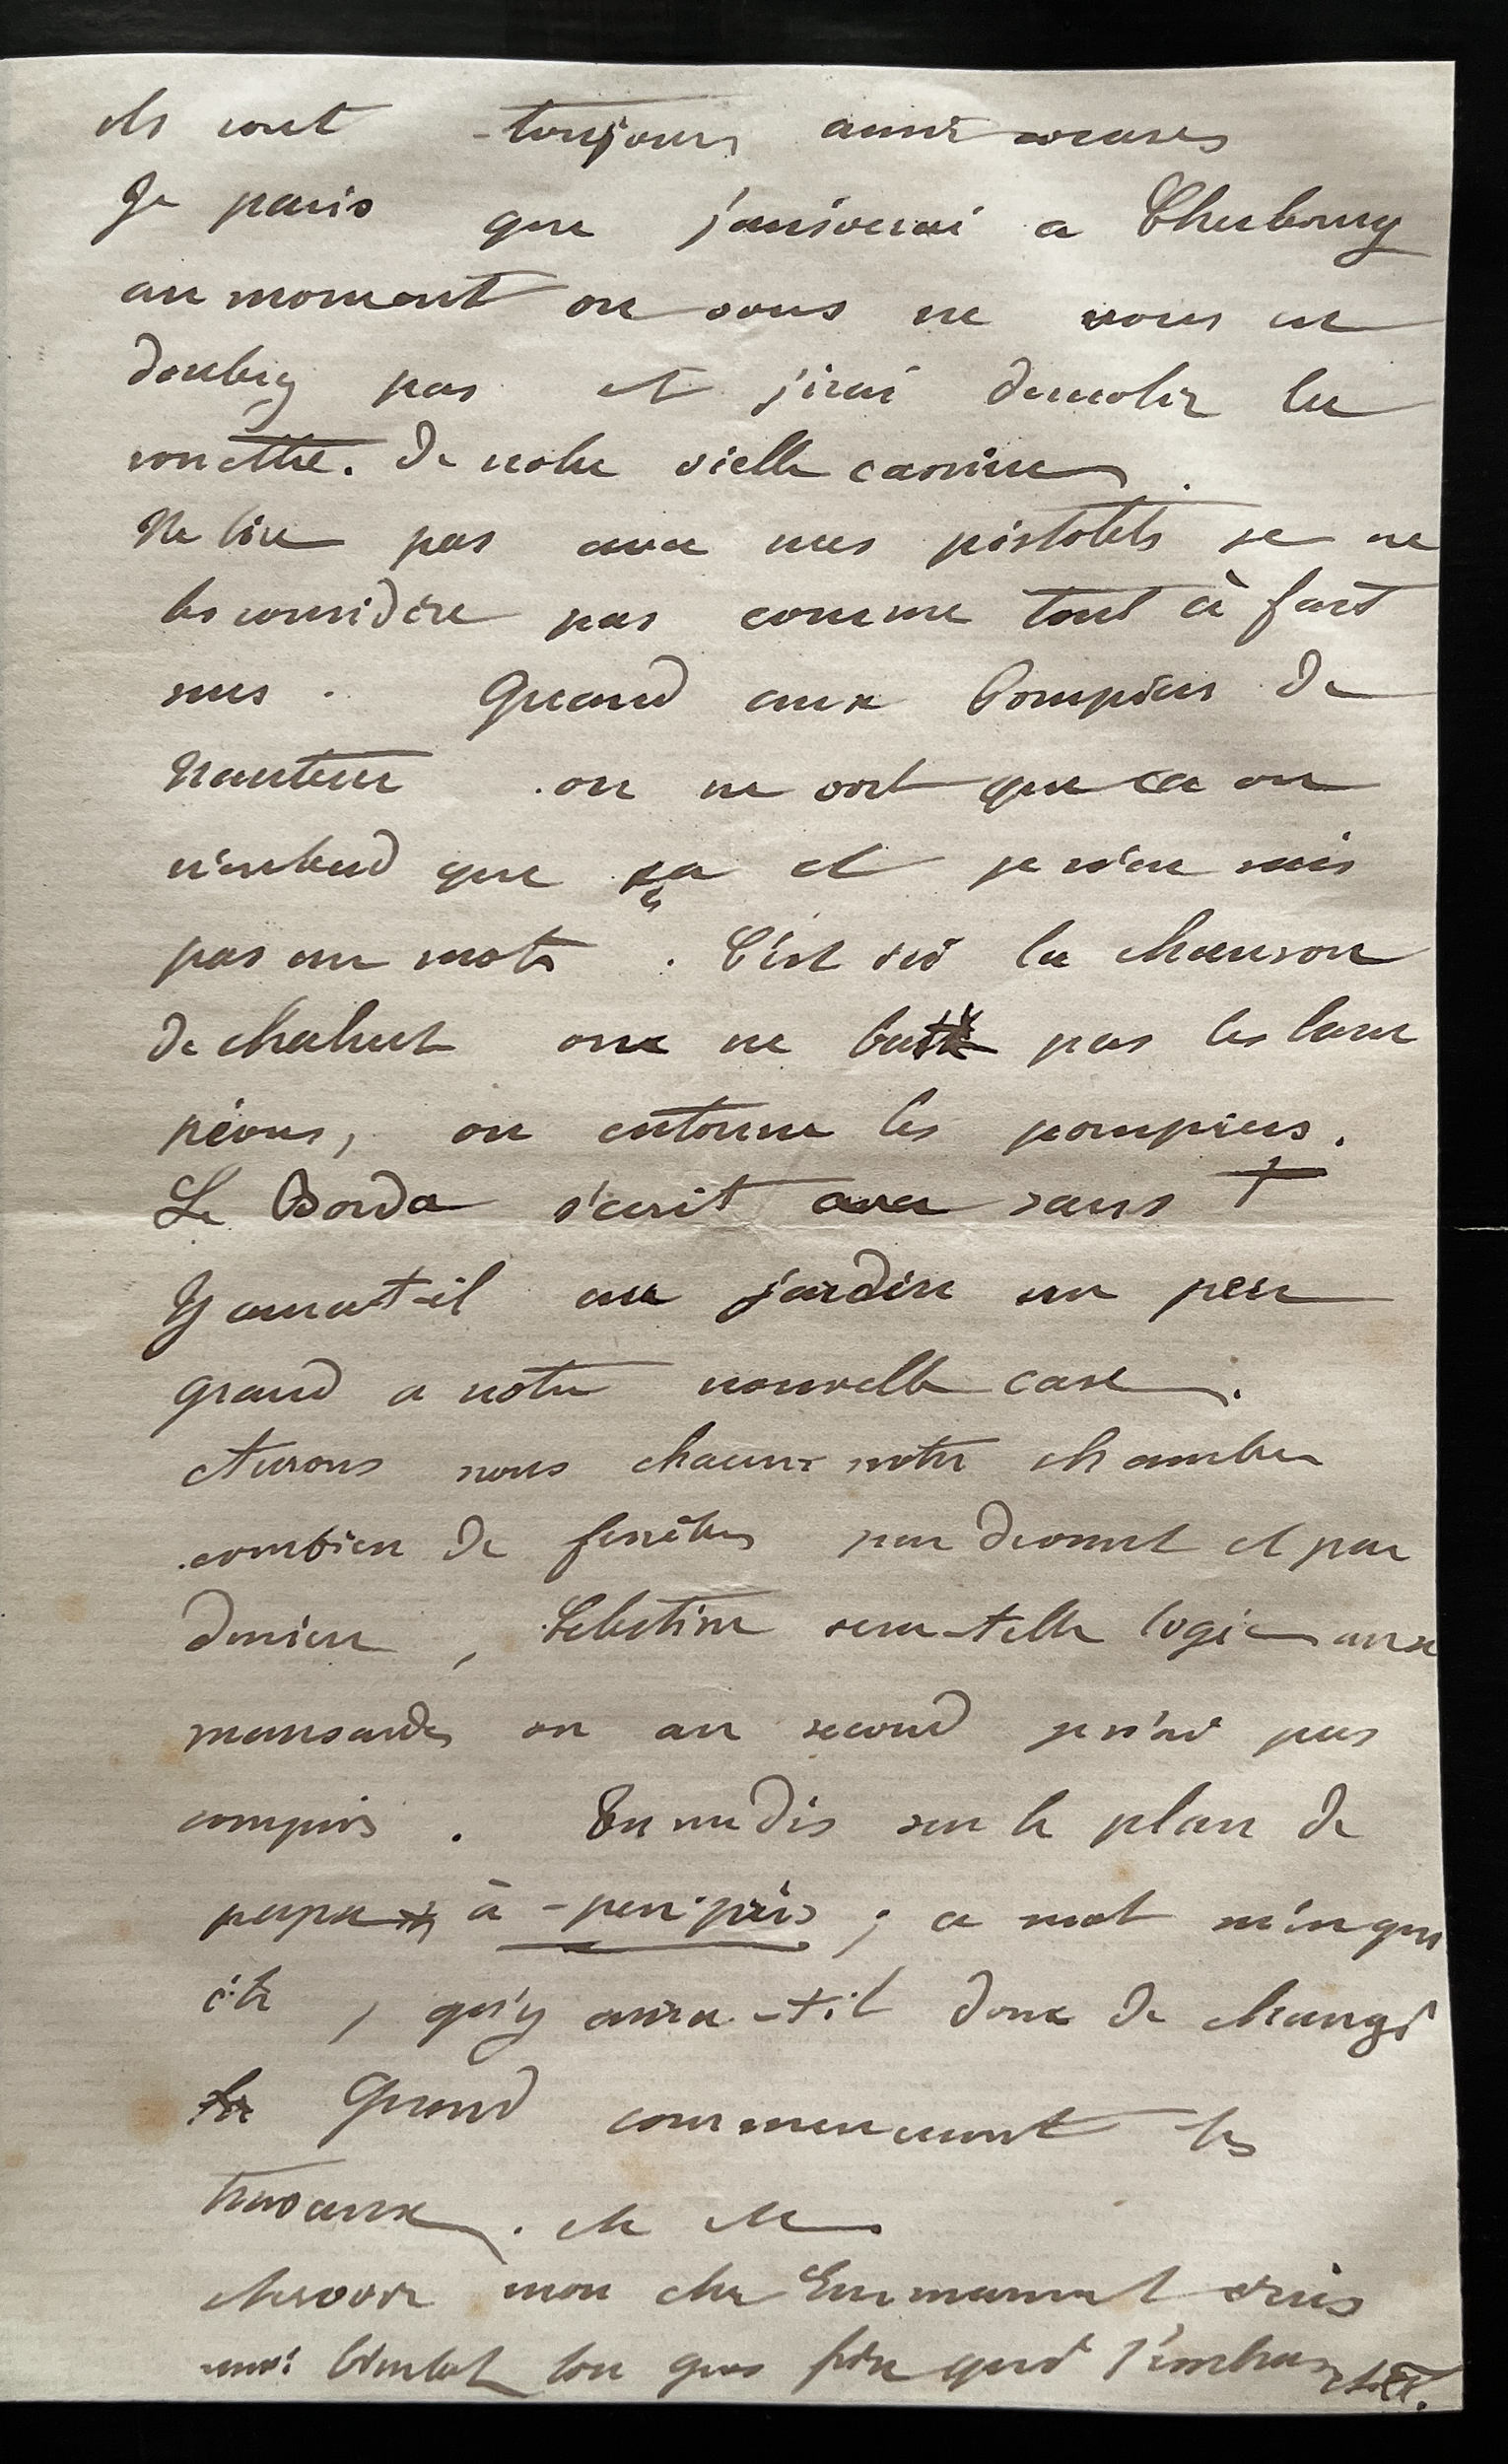 ils sont toujours aussi
Je paris que j'arriverai a Cherbourg
au moment ou vous ne vous en
doutez pas et j'irai demolir la
sonette. de notre vielle casine
Ne tire pas avec mes pistolets je ne
les considère pas comme tout à fait
mes . Quand aux Pompiers de
Nanterre on ne voit que ca on
n'entend que ça et je n'en sais
pas un mots . C'est ici la chanson
de chahut on ne bat pas les lam
pions, on entonne les pompiers.
Le Borda s'ecrit avec sans T
Y aurat-il un jardin un peu
grand a notre nouvelle case .
Aurons nous chacun notre chambre
combien de fenêtres par devant et par
derriere , Celestine sera-t-elle logée aux
mansardes ou au second je n'ai pas
compris . Tu me dis sur le plan de
papa à -peu-près ; ce mot m'inqui
ète , qu'y aura-t-il donc de changé
Quand commencent les
travaux . etc etc
Aurevoir mon cher Emmanuel écris
moi bientot ton gros frère qui t'embrasse